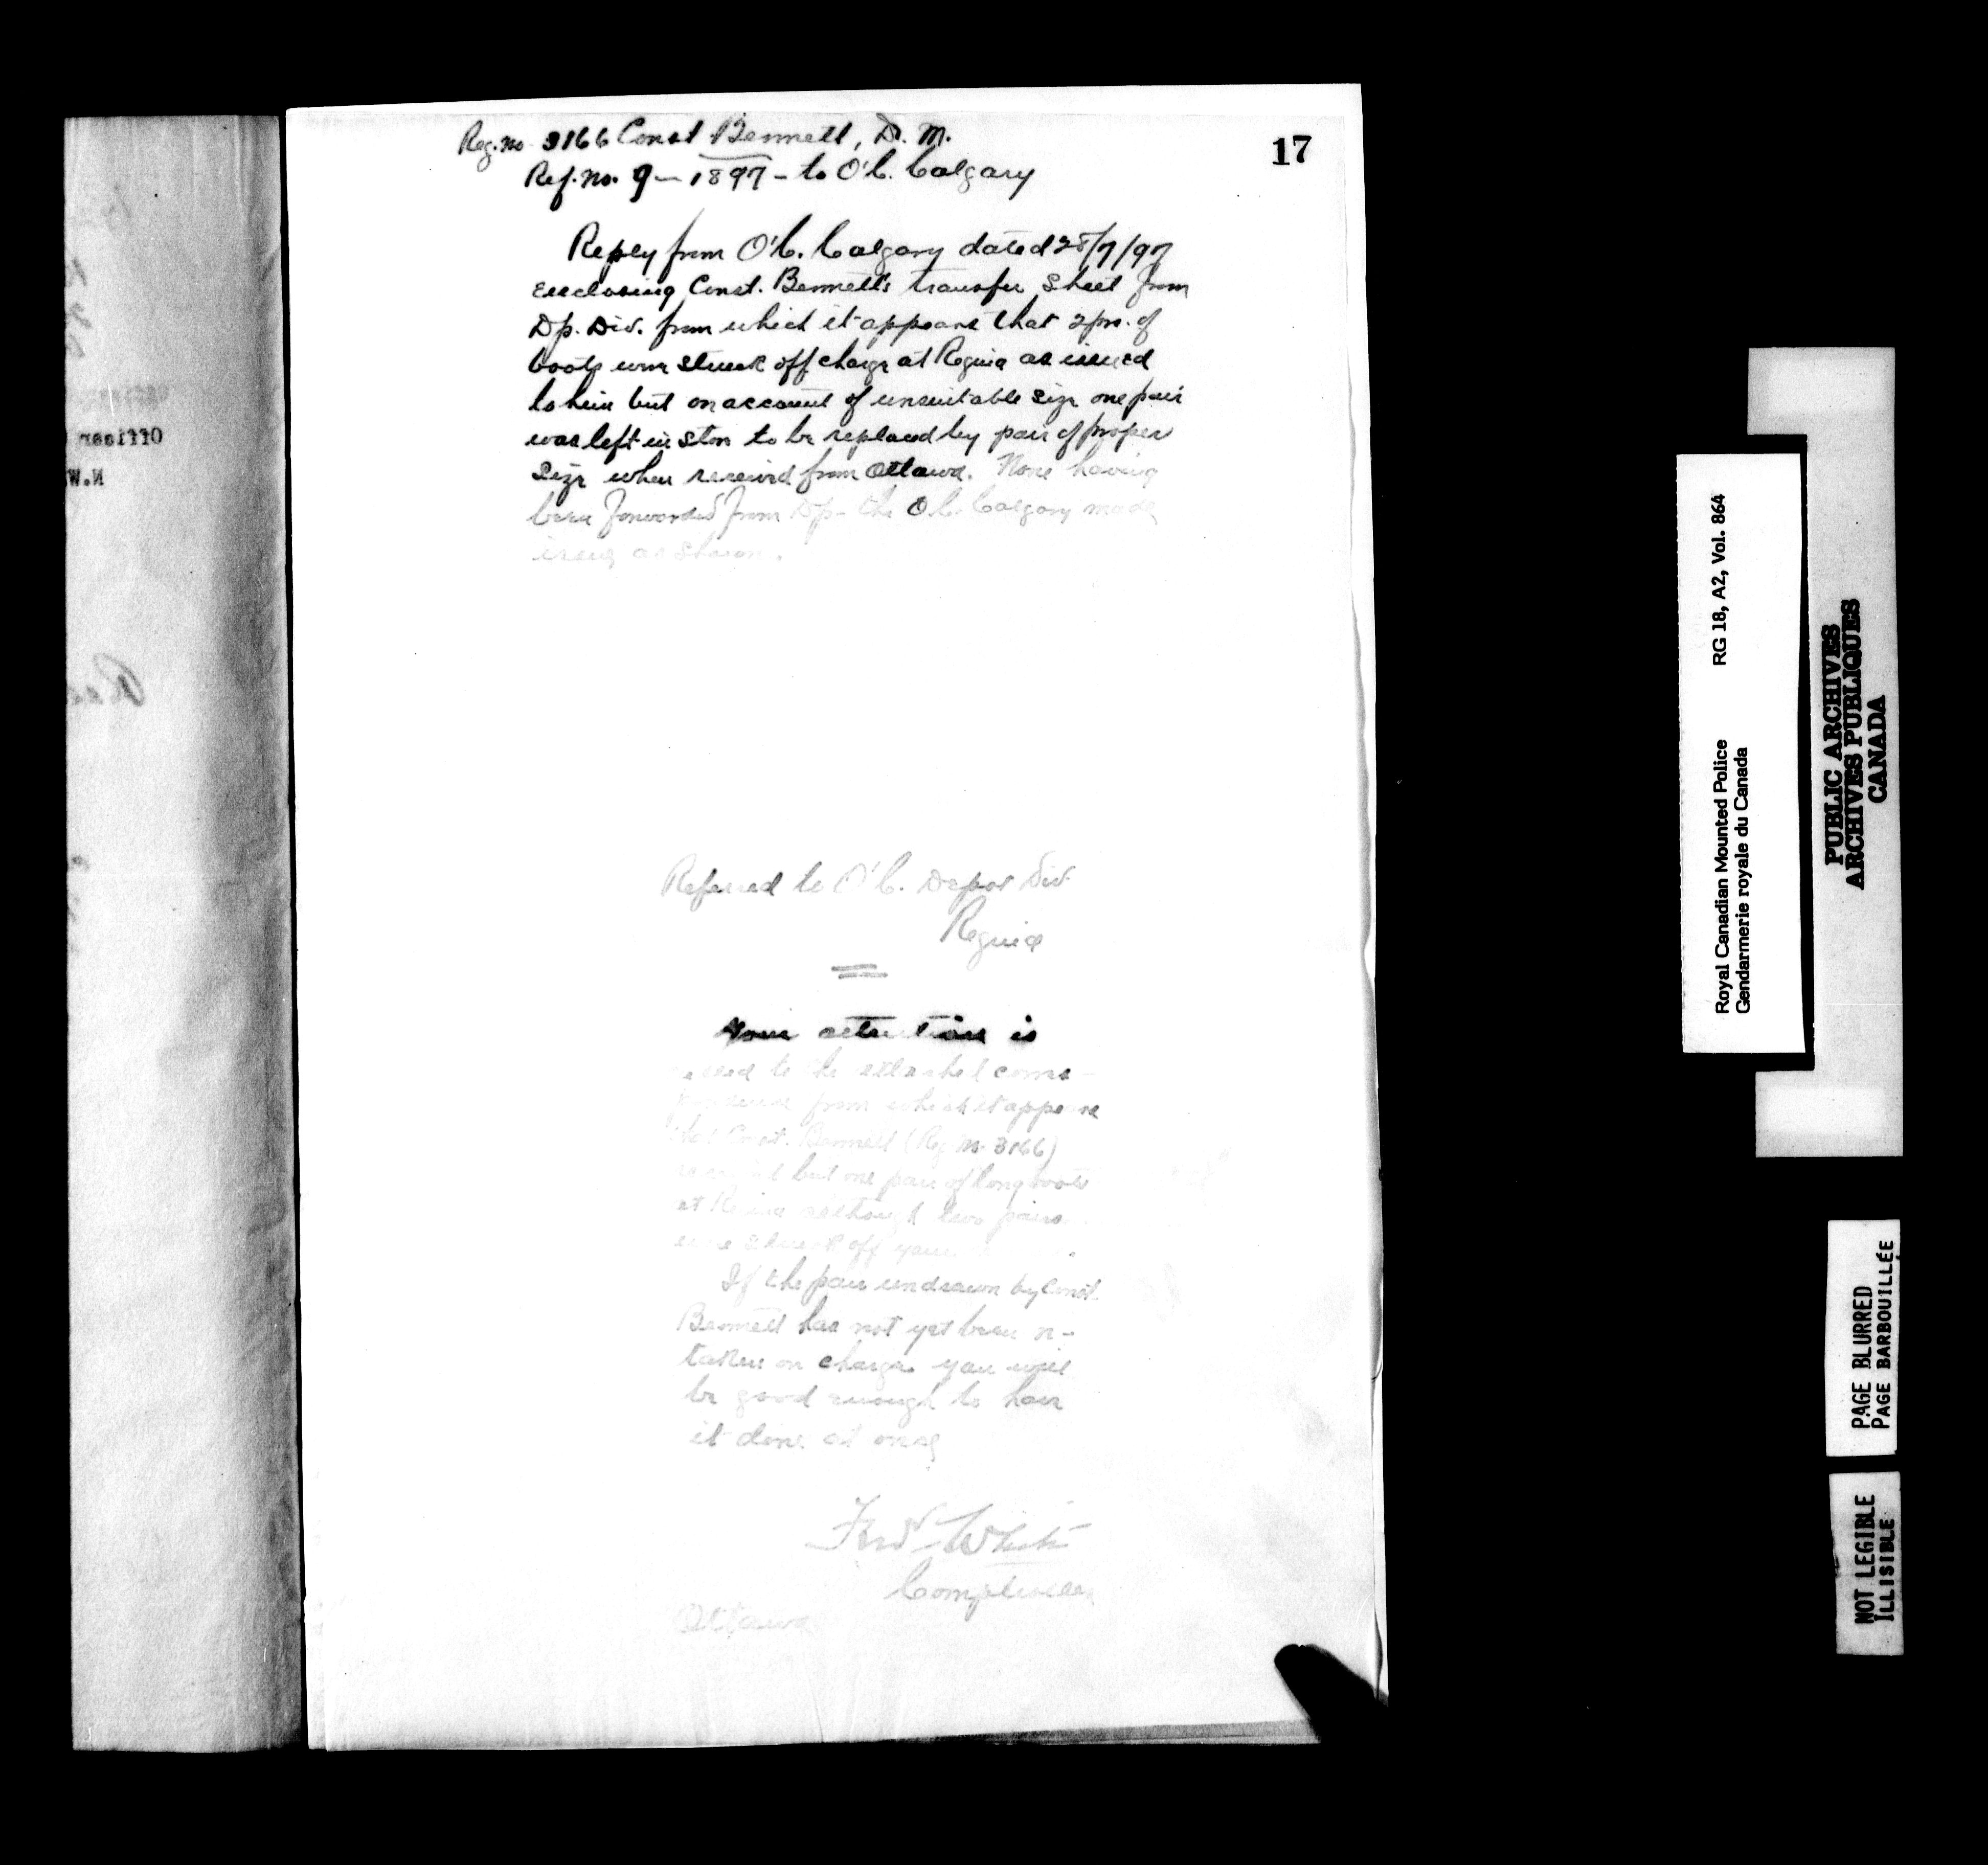 17
Reg. no 3166 Const Bennett, D. M.
Ref. no. 9 - 1897 - to O'C. Calgary
Reply from O'C. Calgary dated 28/7/97
enclosing Const. Bennett's transfer sheet from
Dp. Div. from which it appears that 2 prs. of
boots were struck off charge at Regina as issued
to him but on account of unsuitable size one pair
was left in store to be replaced by pair of proper
size when received from Ottawa. None having
been forwarded from Dp. the O.C. Calgary made
issue as shown.
Referred to O'C. Depot Div.
Regina
Your attention is
called to the attached corres-
pondence from which it appears
that Const. Bennett (Reg No. 3166)
received but one pair of long boots
at Regina although two pairs
were struck off your
If the pair undrawn by Const.
Bennett has not yet been re-
taken on charge you will
be good enough to have
it done at once
Fred White
Comptroller
Ottawa
Officer
N.W
Royal Canadian Mounted Police RG 18, A2, Vol. 864
Gendarmerie royale du Canada
PUBLIC ARCHIVES
ARCHIVES PUBLIQUES
CANADA
PAGE BLURRED
PAGE BARBOUILLÉE
NOT LEGIBLE
ILLISIBLE